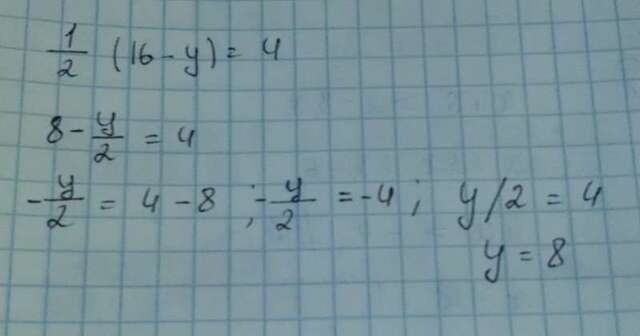 1/2 (16 - y) = 4
8 - y/2 = 4
- y/2 = 4 - 8 ; - y/2 = -4 ; y/2 = 4
y = 8